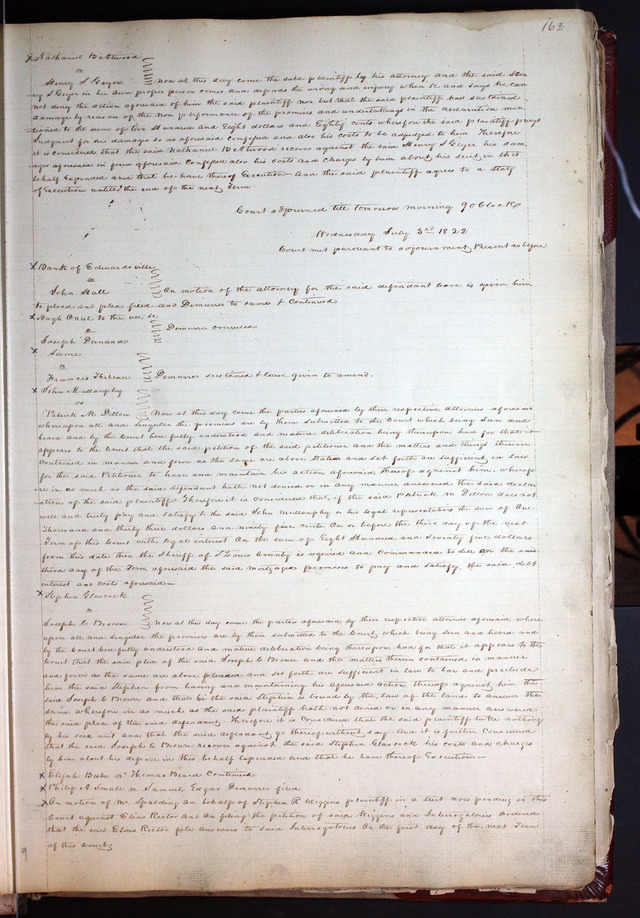 162
x Nathaniel B. Atwood
vs
Henry S Geyer Now at this day come the said plaintiff by his attorney and the said Hen
ry S Geyer in his own proper person comes and defends the wrong and injury when &c and says he can
not deny the action aforesaid of him the said plaintiff nor but that the said plaintiff has sustained
damage by reason of the Non performance of the promises and undertakings in the declaration men
tioned to the sum of Hundred and Eight dollars and Eighty Cents wherefore the said plaintiff prays
Judgment for his damages so as aforesaid Confessed and also his costs to be adjudged to him Therefore
it is considered that the said Nathaniel B. Atwood recover against the said Henry S Geyer his dam
ages aforesaid in form aforesaid Confessed also his costs and charges by him about his suit in this
behalf Expended and that he have thereof Execution And the said plaintiff agrees to a Stay
of Execution untill the end of the next Term
Court adjourned till tomorrow morning 9 OClock
Wednesday July 3rd 1822
Court met pursuant to adjournment, Present as before
x Bank of Edwardsville
vs
John Hall On motion of the attorney for the said defendant leave is given him
to plead and plea filed and Demurrer to same & Continued
x Hugh Oneil to the use &c
vs Demurrer overruled
Joseph
x Same
vs
Francis Thibeau Demurrer sustained & leave given to amend.
x John Mullanphy
vs
Patrick M. Dillon Now at this day come the parties aforesaid by their respective attornies aforesaid
whereupon all and singular the premises are by them submitted to the Court which being seen and
heard and by the Court here fully understood and mature deliberation being thereupon had for that it
appears to the Court that the said petition of the said petitioner and the matters and things therein
contained in manner and form as the same are above stated and set forth are sufficient in law
for the said Petitioner to have and maintain his action aforesaid thereof against him. wherefo
re in as much as the said defendant hath not denied or in any manner answered the said decla
ration of the said plaintiff Therefore it is Considered that if the said Patrick M Dillon does not
well and truly pay and satisfy to the said John Mullanphy or his legal representatives the sum of One
Thousand and thirty three dollars and ninety five cents On or before the third day of the next
Term of this Court with legal interest On the sum of Eight Hundred and Seventy five dollars
from this date then the Sheriff of St Louis County is required and Commanded to sell on the said
third day of the Term aforesaid the said mortgaged premises to pay and satisfy the said debt
interest and costs aforesaid—
x Stephen Glascock
vs
Joseph C Brown Now at this day come the parties aforesaid by their respective attornies aforesaid where
upon all and singular the premises are by them submitted to the Court, which being seen and heard and
by the Court here fully understood and mature deliberation being thereupon had for that it appears to the
Court that the said plea of the said Joseph C Brown and the matters therein contained in manner
and form as the same are above pleaded and set forth are sufficient in law to bar and preclude
him the said Stephen from having and maintaining his aforesaid action thereof against him the
said Joseph C Brown and that he the said Stephen is bound by the Law of the land to answer the
same wherefore in as much as the said plaintiff hath not denied or in any manner answered
the said plea of the said defendant. Therefore it is Considered that the said plaintiff take nothing
by his said writ and that the said defendant go thereof without day. And it is further Considered
that the said Joseph C Brown recover against the said Stephen Glascock his costs and charges
by him about his defence in this behalf Expended and that he have thereof Execution—
x Elijah Beebe vs Thomas Beard Continued
x Philip A Small vs Samuel Edgar Demurrer filed
x On motion of Mr Spalding on behalf of Stephen R Wiggins plaintiff in a suit now pending in this
Court against Elias Rector and On filing the petition of said Wiggins and Interrogatories Ordered
that the said Elias Rector file answers to said Interrogatories On the first day of the next Term
of this Court
9